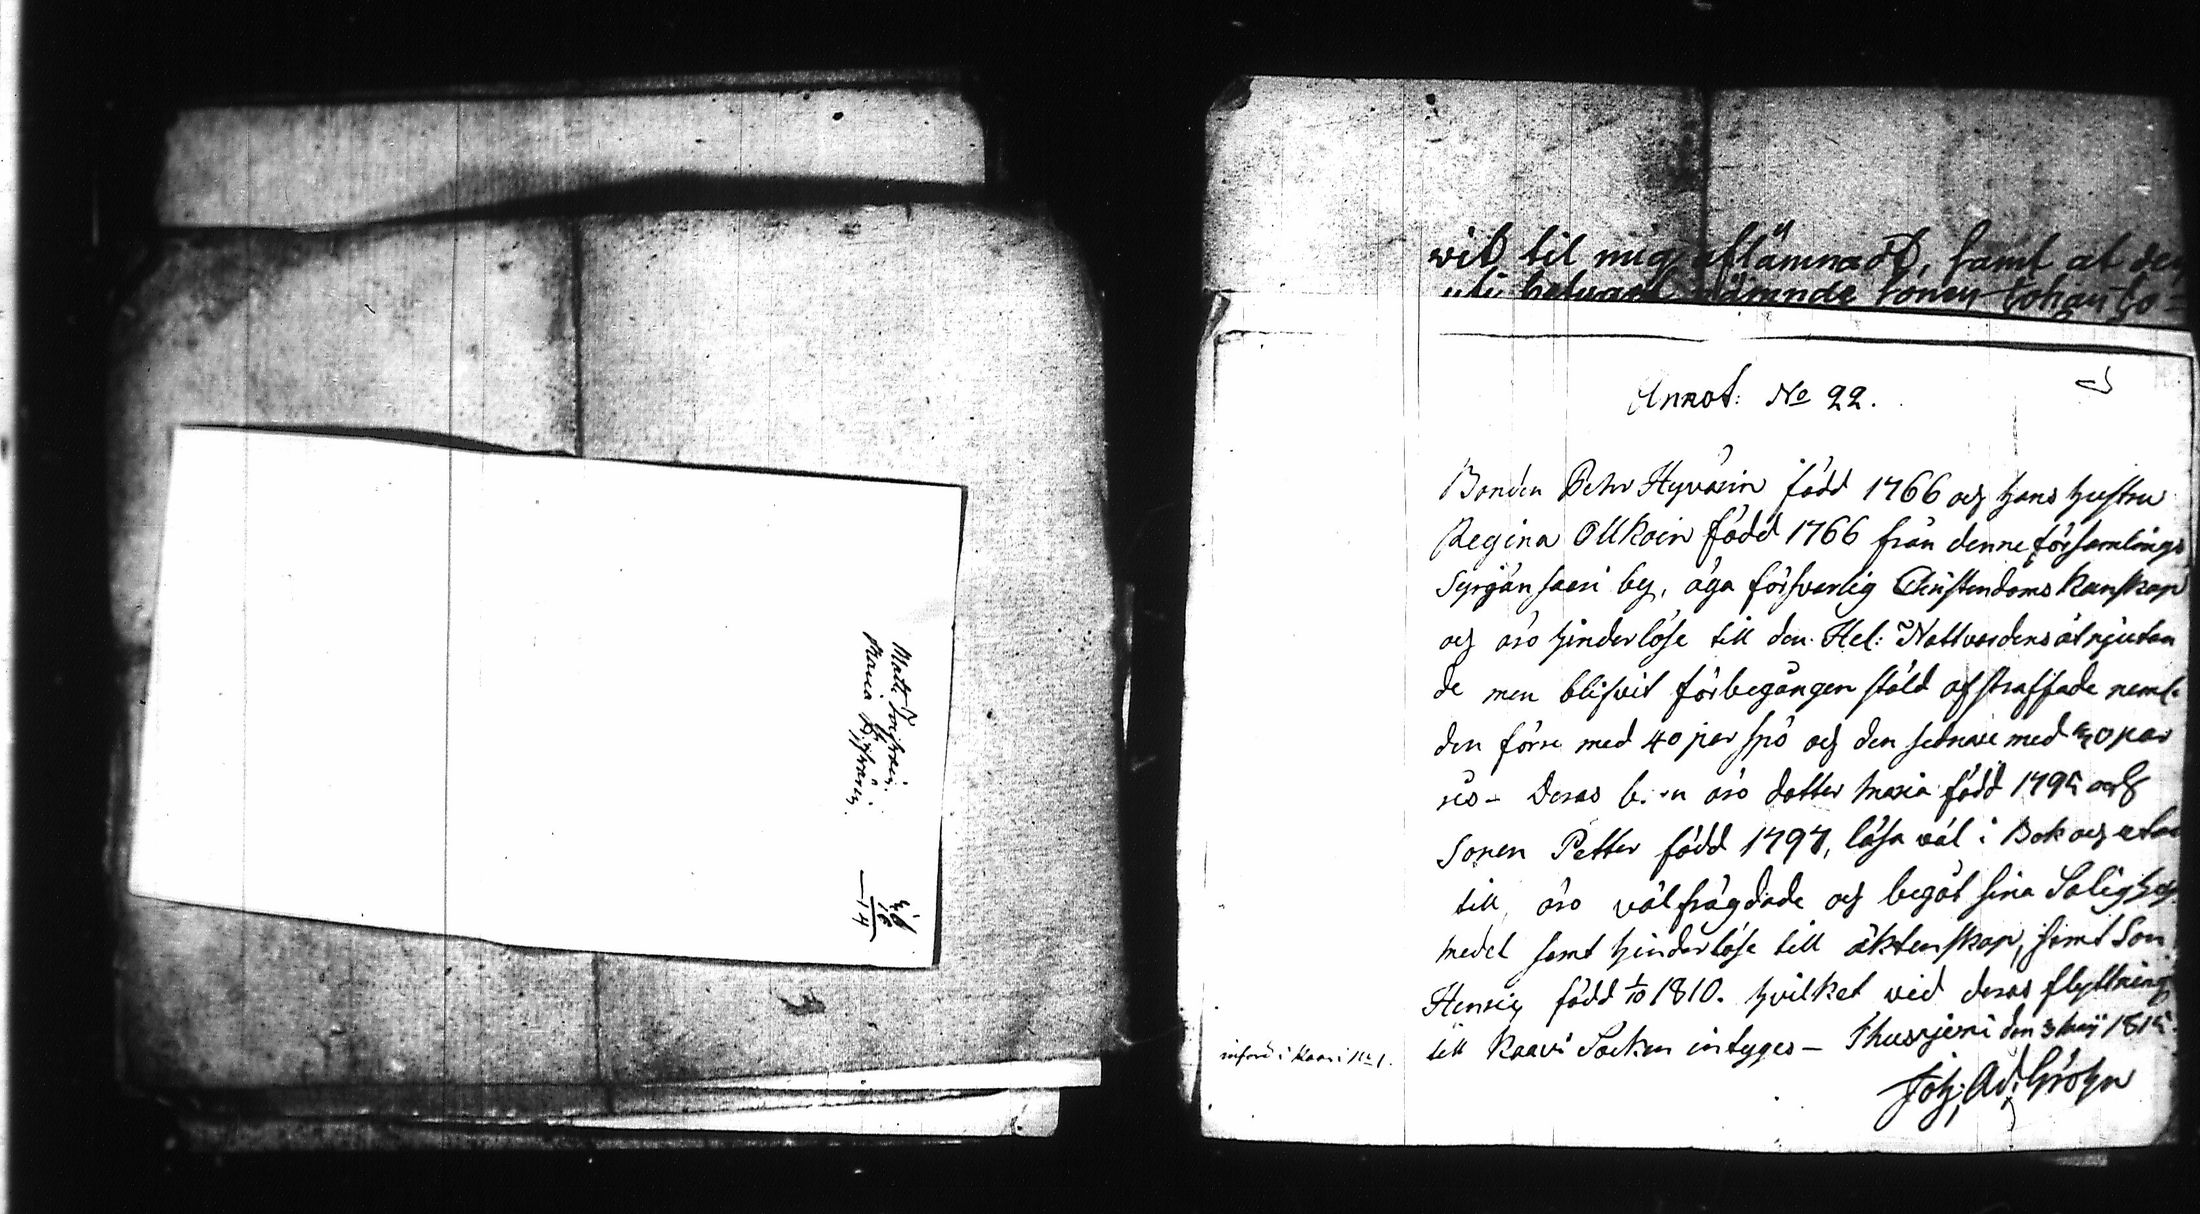 Matts Toiſwain.
Maria Hyvärin.
16
14
wid til mig aflämnadt, samt at den
uti nämnde sonen Johan
Annot: No 22.
Bonden Petr Hyvärin född 1766 och hans hustru
Regina Ollkoin född 1766 från denne församlings
Syrjänsaari by, äga försvarlig Christendoms Kunskap
och äro hinderlöse till den Hel: Nattvardens åtnjutan
de men blifvit för begången stöld afstraffade neml.
den förre med 40 par spö och den sednare med par
ris - Deras äro dotter Maria född 1795 och
Sonen Petter född 1797, läsa väl i Bok och utan
till, äro välfrägdade och begåt sina Salighets
medel samt hinderlöse till äktenskap, samt Son
Henric född 1/10 1810. hvilket vid deras flyttning
till Kaavi Socken intyges - Thusjervi den 3 Maji 1815.
införd i Kaavi No 1.
Joh: Ad: Gröhn